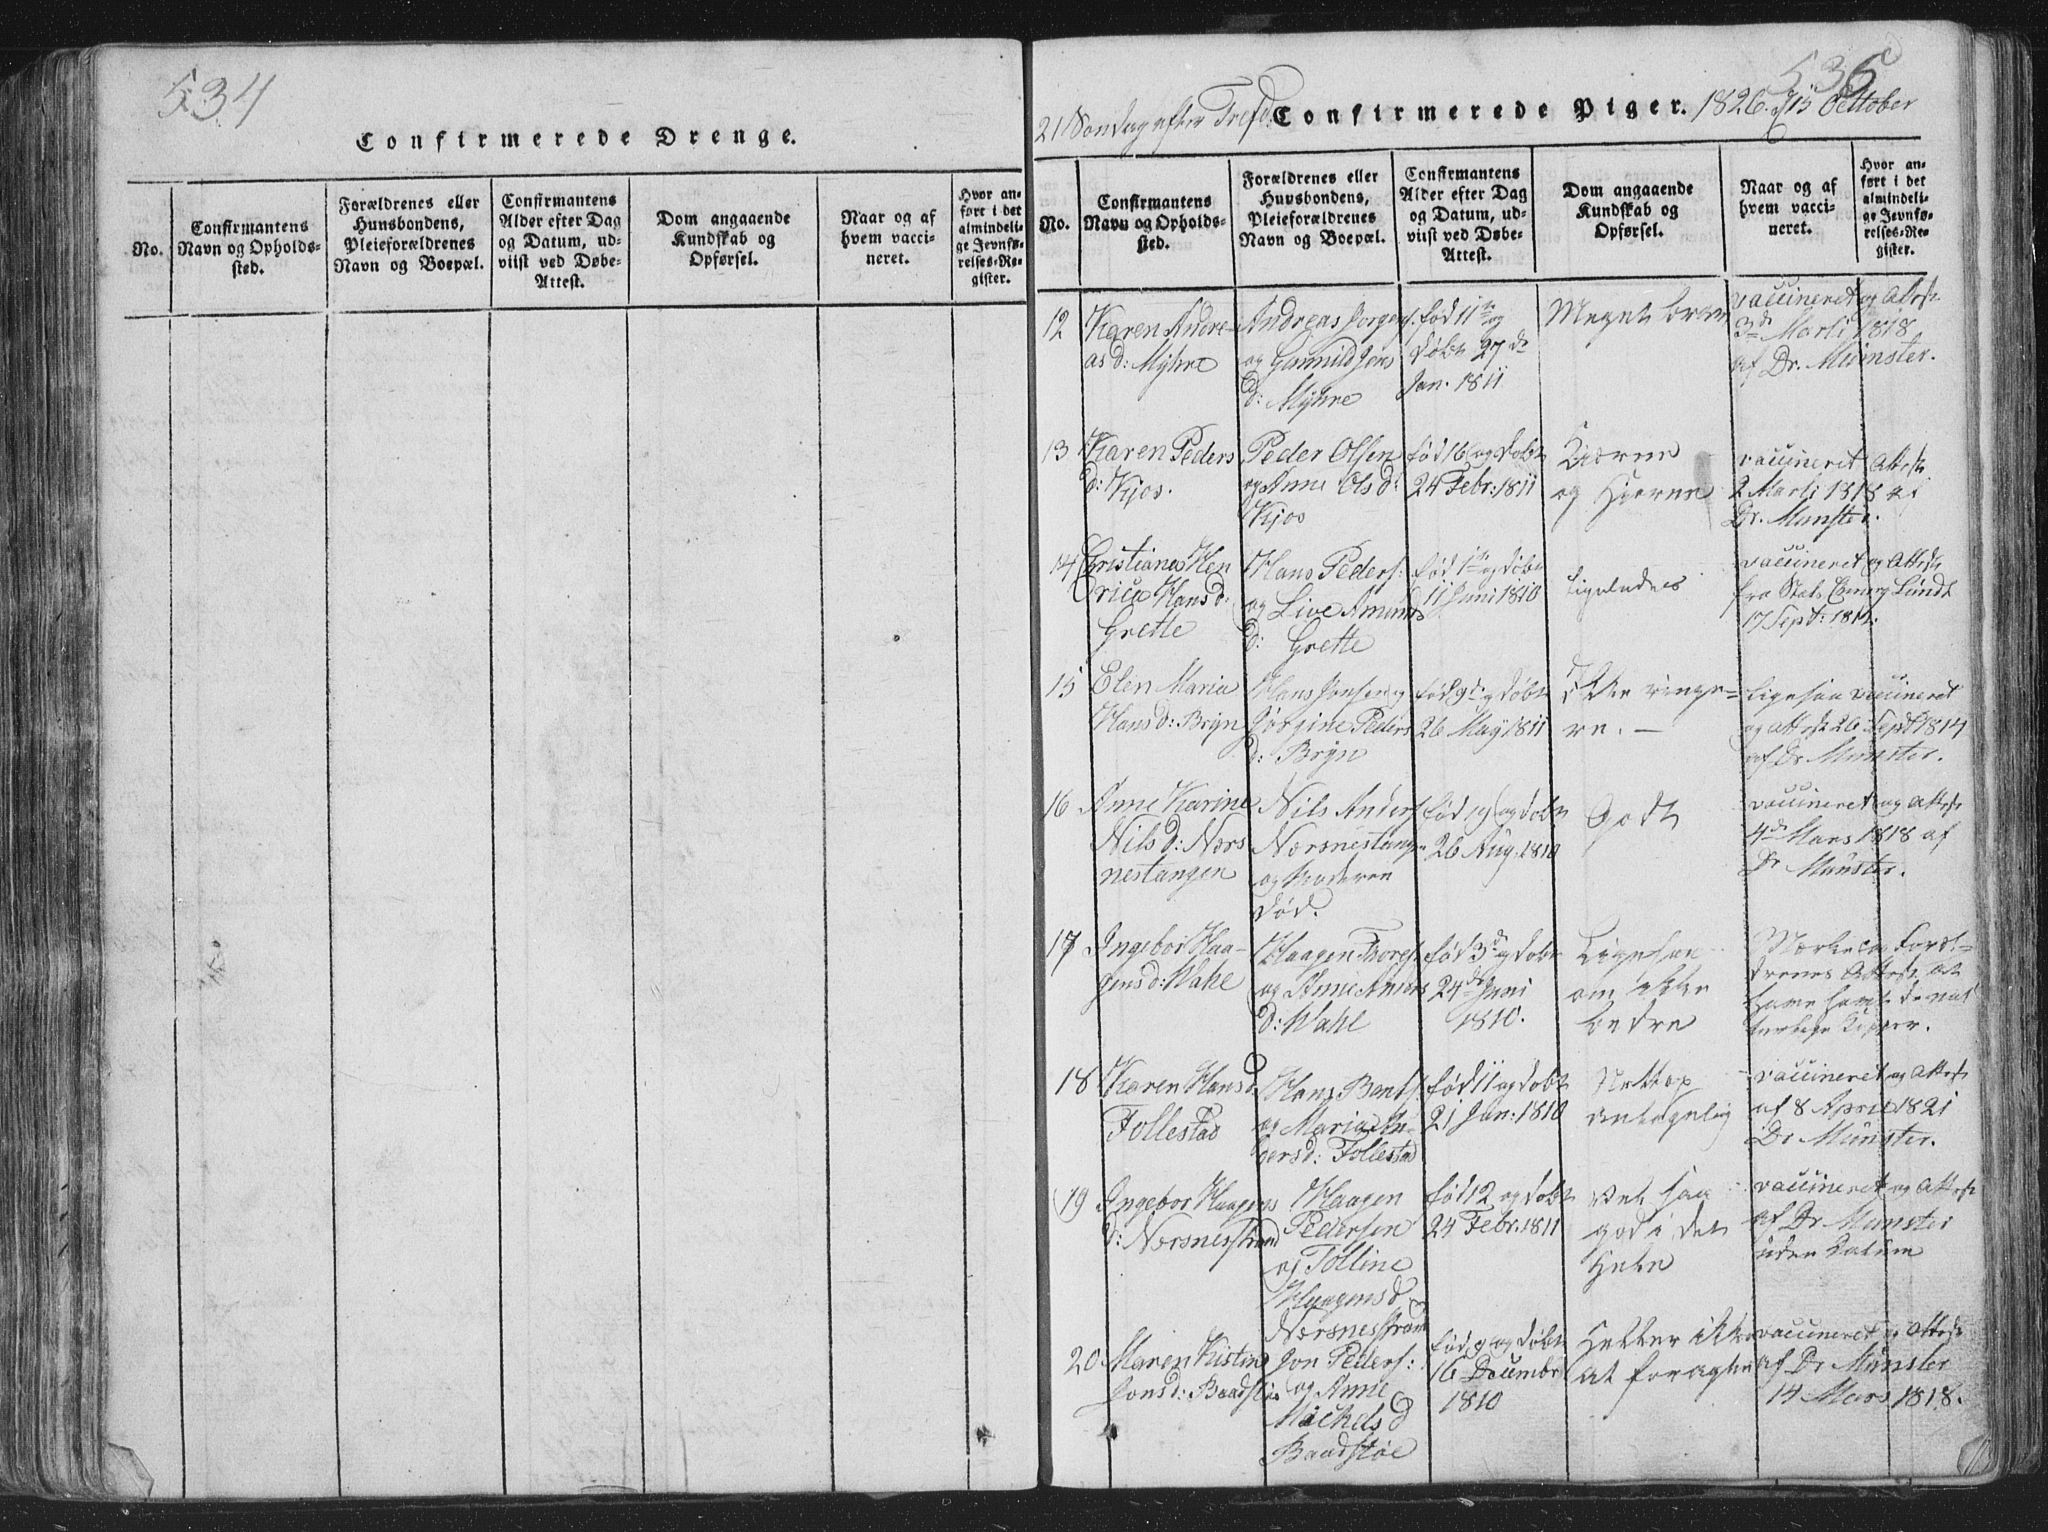 534
Confirmerede Drenge.
No.
Confirmantens
Navn og Opholds-
sted.
Forældrenes eller
Huusbondens,
Pleieforældrenes
Navn og Boepæl.
Confirmantens
Alder efter Dag
og Datum, ud-
viist ved Døbe-
Attest.
Dom angaaende
Kundskab og
Opførsel.
Naar og af
hvem vacci-
neret.
Hvor an-
ført i det
almindeli-
ge Jevnfø-
relses-Re-
gister.
535
21 Søndag efter Trefd.
Confirmerede Piger.
1826. 15 October
No.
Confirmantens
Navn og Opholds-
sted.
Forældrenes eller
Huusbondens,
Pleieforældrenes
Navn og Boepæl.
Confirmantens
Alder efter Dag
og Datum, ud-
viist ved Døbe-
Attest.
Dom angaaende
Kundskab og
Opførsel.
Naar og af
hvem vacci-
neret.
Hvor an-
ført i det
almindeli-
ge Jevnfø-
relses-Re-
gister.
12
Karen Andre-
as d: Myhre
Andreas Jorgens.
og Gunnild Jens
d: Myhre
fød 11te og
døbt 27de
Jan. 1811
Meget brav
vaccineret og Attest
3de Marti 1818
af Dr. Münster.
13
Karen Peders
d: Kjos.
Peder Olsen
og Anne Ols d:
Kjos
fød 16 og døbt
24 Febr: 1811
og
vaccineret Attest
2 Marti 1818 af
Dr. Münster.
14
Christiana Hen
rica Hans d:
Grette
Hans Peders:
og Live Amunds
d: Grette
fød 1te og døbt
11 Juni 1810
Ligeledes
vaccineret og Attest
fra Lundt
17 Sept: 181
15
Elen Maria
Hans d: Bryn
Hans Jonsen og
Jörgine Peders
d: Bryn
fød 9de og døbt
26 May 1811
ikke ringe=
re. —
ligesaa vaccineret
og Attest 26 Sept 1814
af Dr Münster.
16
Anne Karine
Nils d: Næرs
nestangen
Nils Anders.
Nærsnestang.
og Moderen
død.
fød 19 og døbt
26 Aug. 1810
Godt
vaccineret og Attest
4de Mars 1818 af
Dr Münster.
17
Ingebor Haa-
gens d: Wahl
Haagen Tores.
og Anne Anders
d: Wahl
fød 3de og døbt
24de Juni
1810.
Ligesaa
om ikke
bedre
Mærke og Foræl-
drenes Attest at
have havt de nat
turlige Kopper.
18
Karen Hans d
Follestad
Hans Bents.
og Maria An-
ders d: Follestad
fød 11 og døbt
21 Jan: 1810
Nettop
antagelig
vaccineret og Attest
af 8 April 1821
Dr Münster.
19
Ingebor Haagens
d: Nærsnesstrand
Haagen
Pedersen
og Tolline
Haagens d
Nærsnesstrand
fød 12 og døbt
24 Febr. 1811
Vel saa
god i det
Hele
vaccineret og Attest
af Dr Münster
uden Datum
20
Maren Kistine
Jons d: Baadstøe
Jon Peders:
og Anne
Michels d
Baadstøe
fød 9 og døbt
16 Decembr
1810
Heller ikke
at foragte
vaccineret og Attest
af Dr Münster
14 Mars 1818.